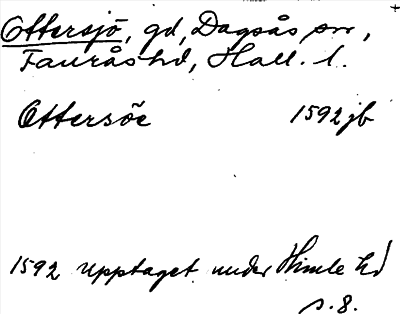 Ottersjö, gd, Dagsås sn,
Faurås hd, Hall. l.
Ottersöe 1592 jb
1592 upptaget under Himle hd
s. 8.